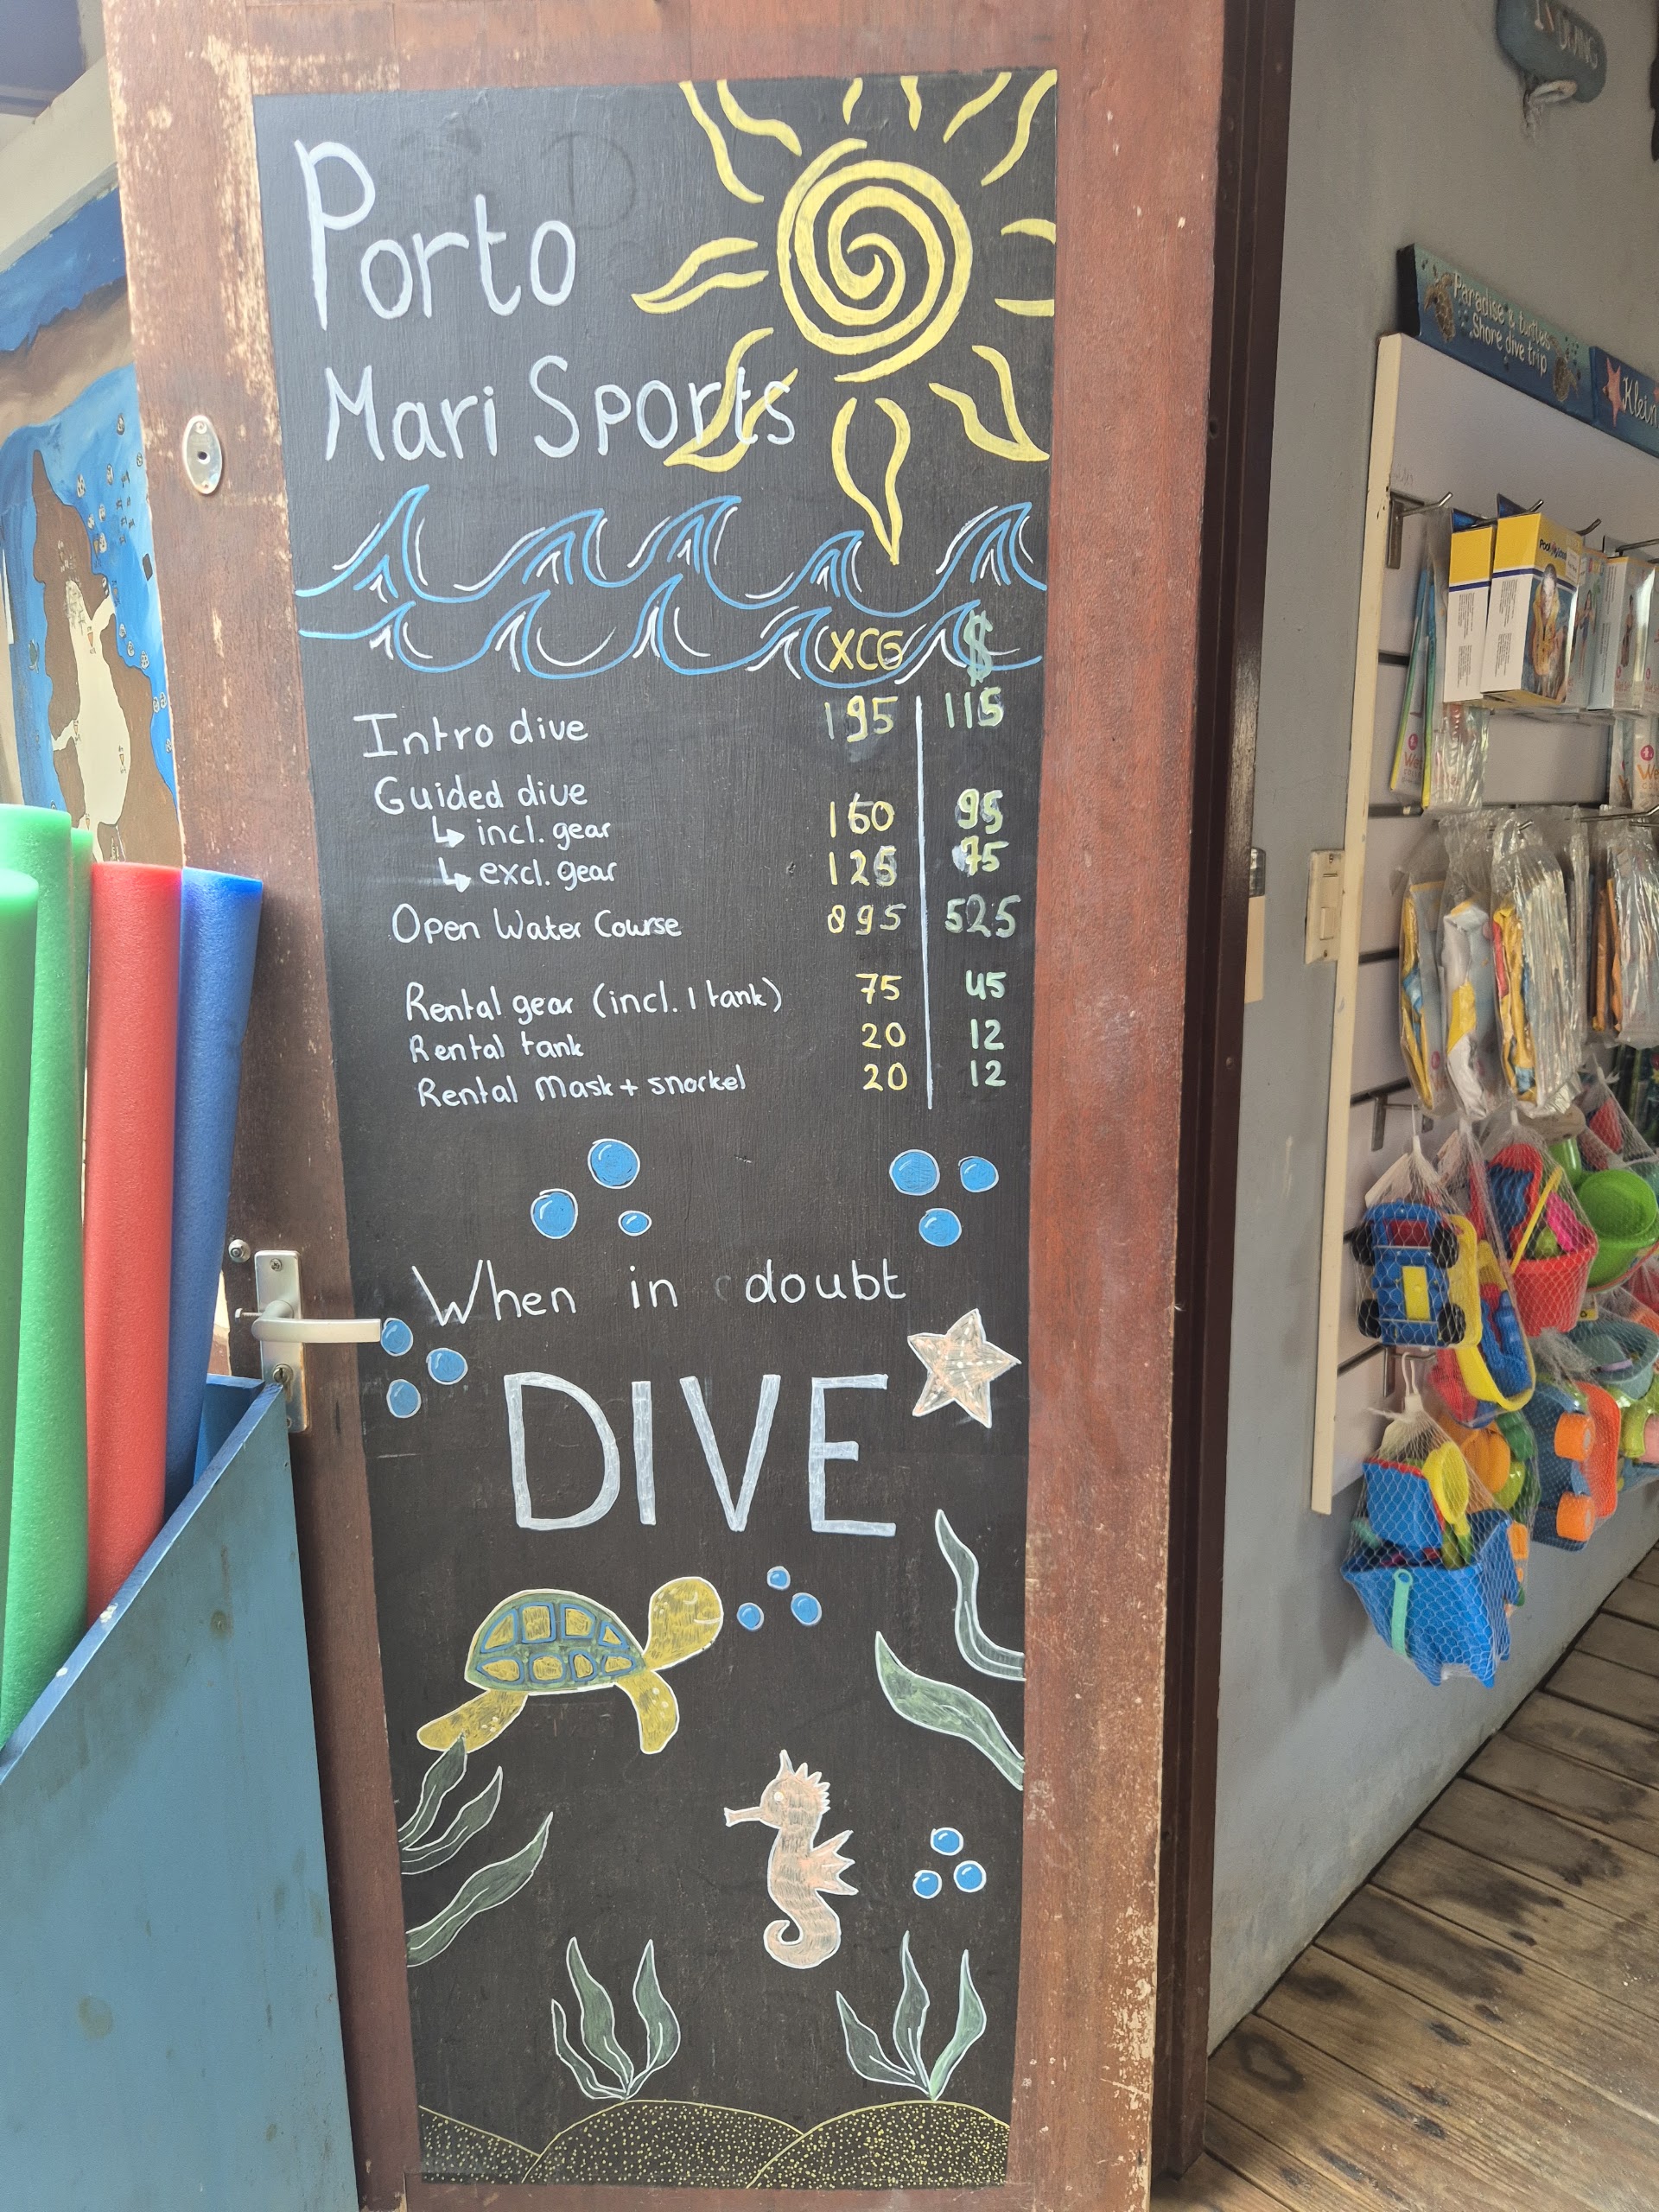 Porto
Mari Sports
XCG $
Intro dive 195 115
Guided dive
↳ incl. gear 160 95
↳ excl. gear 125 75
Open Water Course 895 525
Rental gear (incl. 1 tank) 75 45
Rental tank 20 12
Rental Mask + snorkel 20 12
When in doubt
DIVE
Paradise & turtles
Shore dive trip
Klein